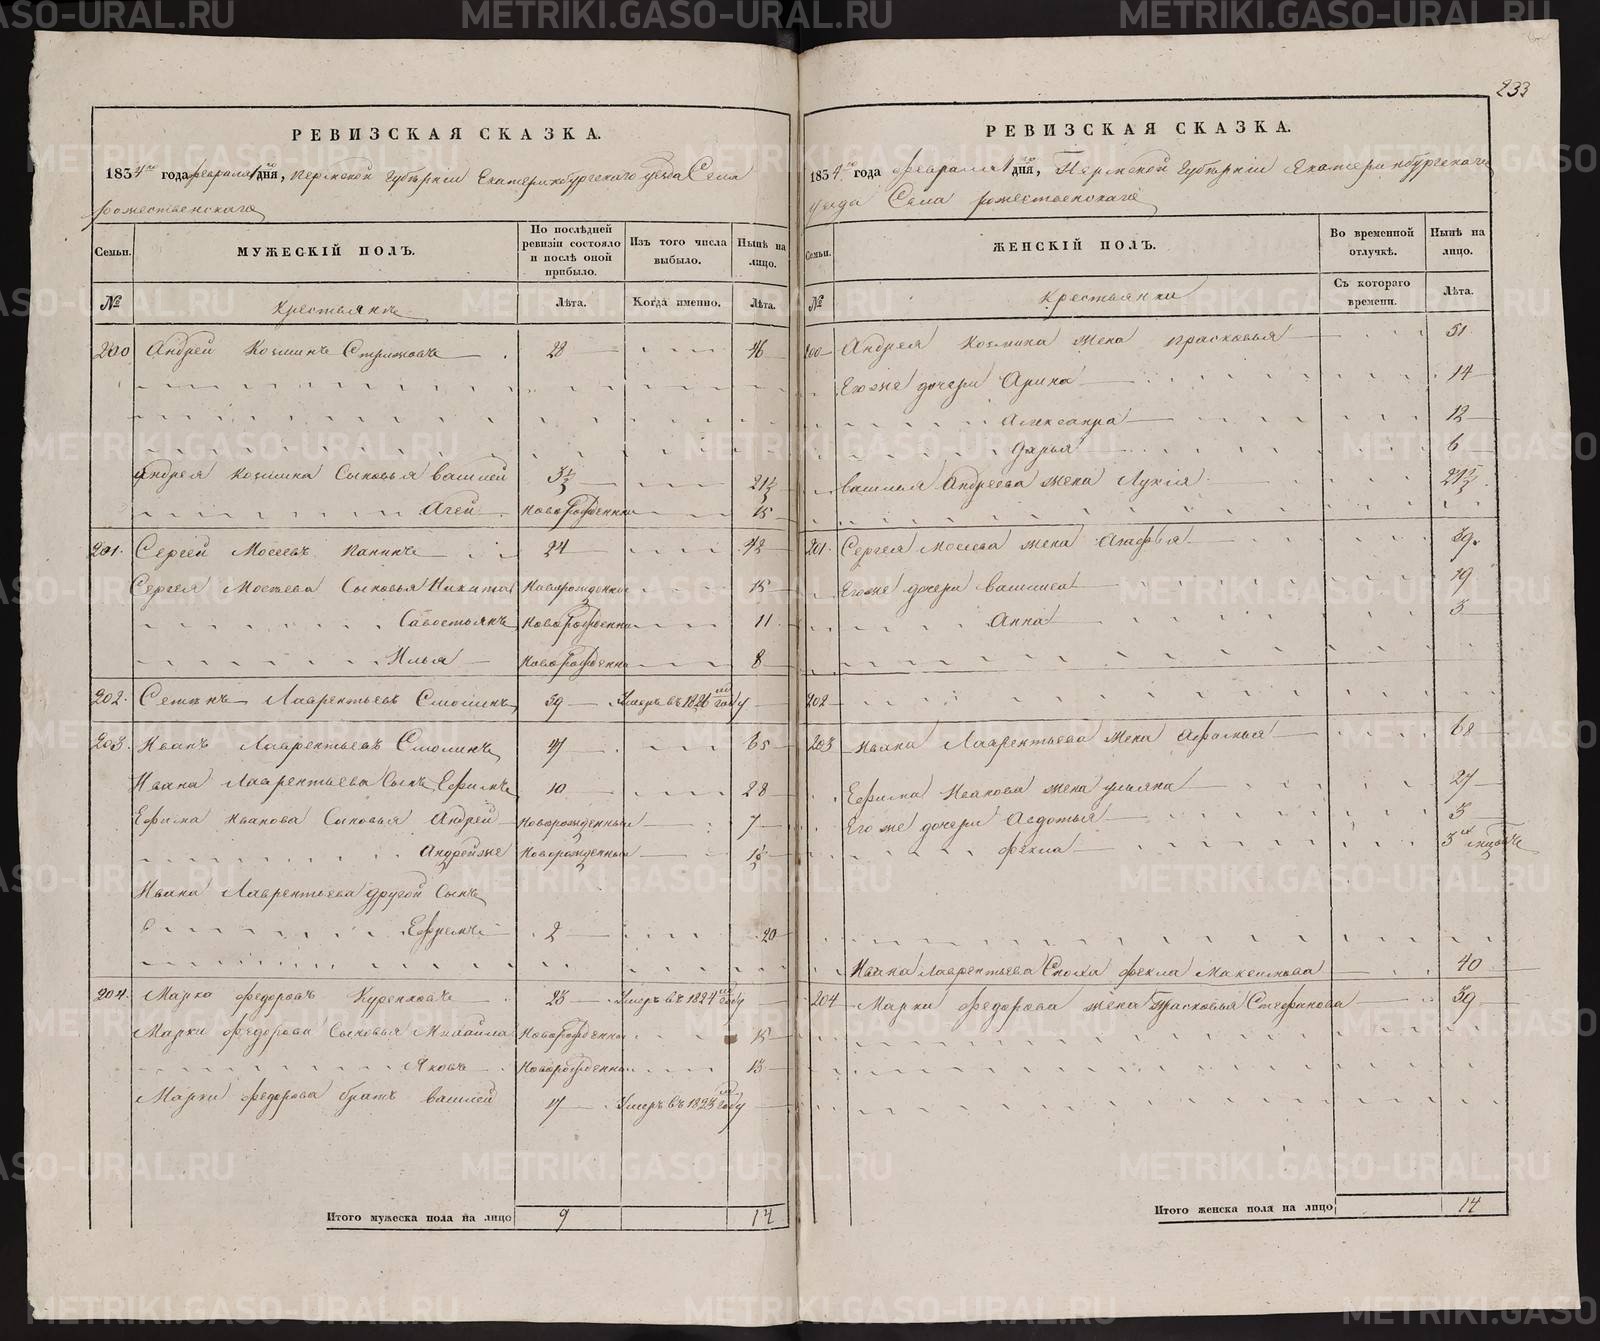 233
РЕВИЗСКАЯ СКАЗКА.
1834го года февраля 1го дня, Пермской Губѣрніи Екатеринбургскаго уезда Села
рожественскаго
Семьи.
МУЖЕСКІЙ ПОЛЪ.
По послѣдней ревизіи состояло и послѣ оной прибыло.
Изъ того числа выбыло.
Нынѣ на лицо.
№
Крестьянъ
Лѣта.
Когда именно.
Лѣта.
200 Андрей Козминъ 28 46
Андрея Козмина Сыновья василей 3½ 21½
Агей Новорожденны 15
201. Сергей Мосеевъ Панинъ 24 42
Сергея Мосеева Сыновья Никита Новорожденной 15
Савостьянъ Новорожденны 11
Илья Новорожденны 8
202. Семенъ Лаврентьевъ Смолинъ 59 Умеръ въ 1826мъ году
203. Иванъ Лаврентьевъ Смолинъ 47 65
Ивана Лаврентьева Сынъ Ефимъ 10 28
Ефима Иванова Сыновья Андрей Новорожденный 7
Андрей же Новорожденный 1½
Ивана Лаврентьева другой Сынъ
Ефремъ 2 20
204. Марко федоровъ Куренковъ 23 Умеръ въ 1824мъ году
Марки федорова Сыновья Михайла Новорожденны 15
Яковъ Новорожденны 13
Марки федорова братъ василей 17 Умеръ въ 1823мъ году
Итого мужеска пола на лицо 9 14
РЕВИЗСКАЯ СКАЗКА.
1834го года февраля 1го дня, Пермской Губѣрніи Екатеринбургскаго
уезда Села рожественскаго
Семьи.
ЖЕНСКІЙ ПОЛЪ.
Во временной отлучкѣ.
Нынѣ на лицо.
№
Крестьянки
Съ котораго времени.
Лѣта.
200 Андрея Козмина жена прасковья 51
Его же дочери Арина 14
Александра 12
Дарья 6
василья Андреева жена Лукія 21½
201. Сергея Мосеева жена Агафья 39.
Его же дочери василиса 19
Анна 3
202
203 Ивана Лаврентьева жена Афимья 68
Ефима Иванова жена ульяна 27
Его же дочери Авдотья 3
фекла 3
Ивана Лаврентьева Сноха фекла Максимова 40
204 Марки федорова жена Прасковья Стефанова 39
Итого женска пола на лицо 14
METRIKI.GASO-URAL.RU